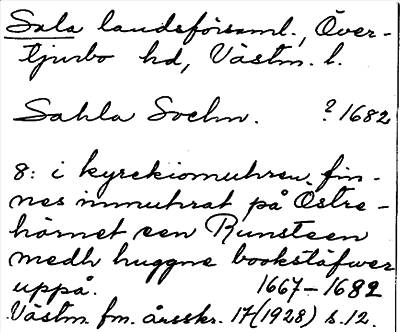 Sala landsförsaml., Över-
tjurbo hd, Västm. l.
Sahla Sochn. ? 1682
8: i kyrckiomuhren fin-
nes inmuhrat på Östre-
hörnet een Runsteen
medh huggne bookstäfwer
uppå. 1667-1682
Västm. fm. årsskr. 17(1928) s. 12.